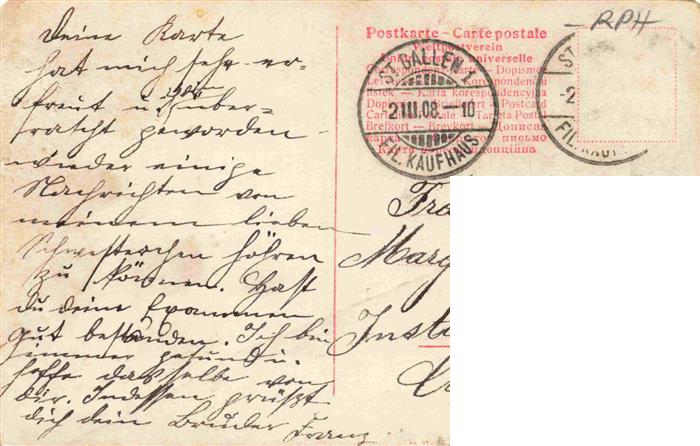 Deine Karte
hat mich sehr er-
freut u. über-
rascht geworden
wieder einige
Nachrichten von
meinem lieben
Schwesterchen hören
zu können. Hast
du dein Examen
gut bestanden. Ich bin
immer gesund u.
hoffe dasselbe von
dir. Indessen grüßt
dich dein Bruder Franz
Postkarte - Carte postale
Weltpostverein
Union postale universelle
Correspondenzkarte - Dopisnice
Korespondencni
listek - Karta korespondencyjna
Briefkort - Postcard
Tarjeta Postal
Brefkort - Brevkort
ST. GALLEN 1
2.III.08.-10
FIL. KAUFHAUS
ST
-2
FIL. KAUF
RPH
Fra
Marg
Insti